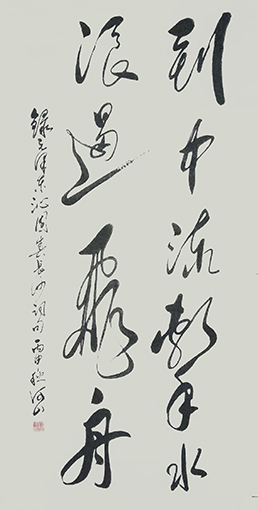 到中流擊水
浪遏飛舟
錄毛澤東沁園春長沙詞句 丙申 河山